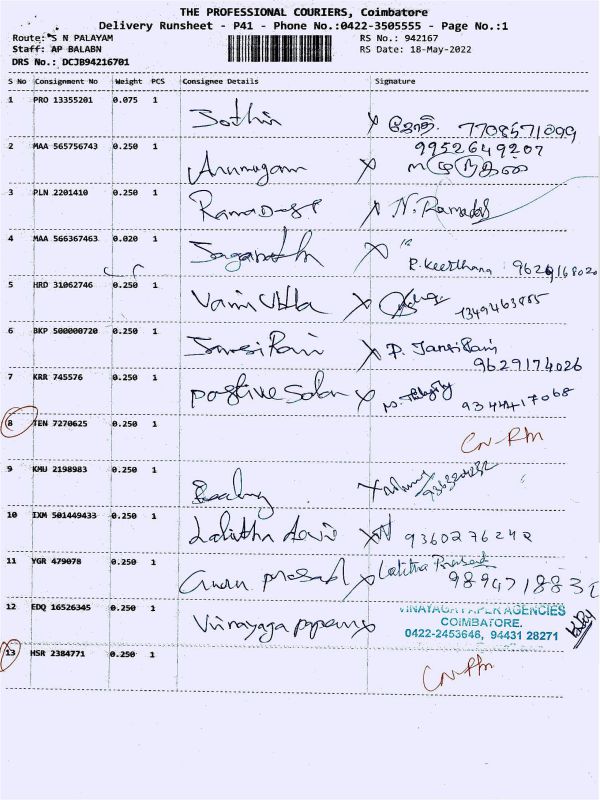 THE PROFESSIONAL COURIERS, Coimbatore
Delivery Runsheet - P41 - Phone No.:0422-3505555 - Page No.:1
Route: S N PALAYAM RS No.: 942167
Staff: AP BALABN RS Date: 18-May-2022
DRS No.: DCJB94216701
S No Consignment No Weight PCS Consignee Details Signature
1 PRO 13355201 0.075 1 ஜோதி. 7708571099
2 MAA 565756743 0.250 1 Arumugam 9952649207
3 PLN 2201410 0.250 1 Ramadass N. Ramadas
4 MAA 566367463 0.020 1 Jaganath R. Keerthana 9629168020
5 HRD 31062746 0.250 1
6 BKP 500000720 0.250 1 Jansi Rani P. Jansi Rani
9629174026
7 KRR 745576 0.250 1 Positive Solar
8 TEN 7270625 0.250 1
9 KMU 2198983 0.250 1
10 IXM 501449433 0.250 1 Lalitha devi 9360276242
11 YGR 479078 0.250 1 Arun prasad Lalitha Prasad
12 EDQ 16526345 0.250 1 Vinayaga papers VINAYAGA PAPER AGENCIES
COIMBATORE.
0422-2453646, 94431 28271
13 HSR 2384771 0.250 1